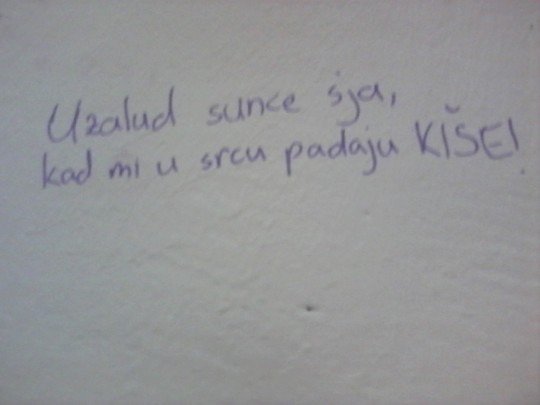 Uzalud sunce sja,
kad mi u srcu padaju KIŠE!